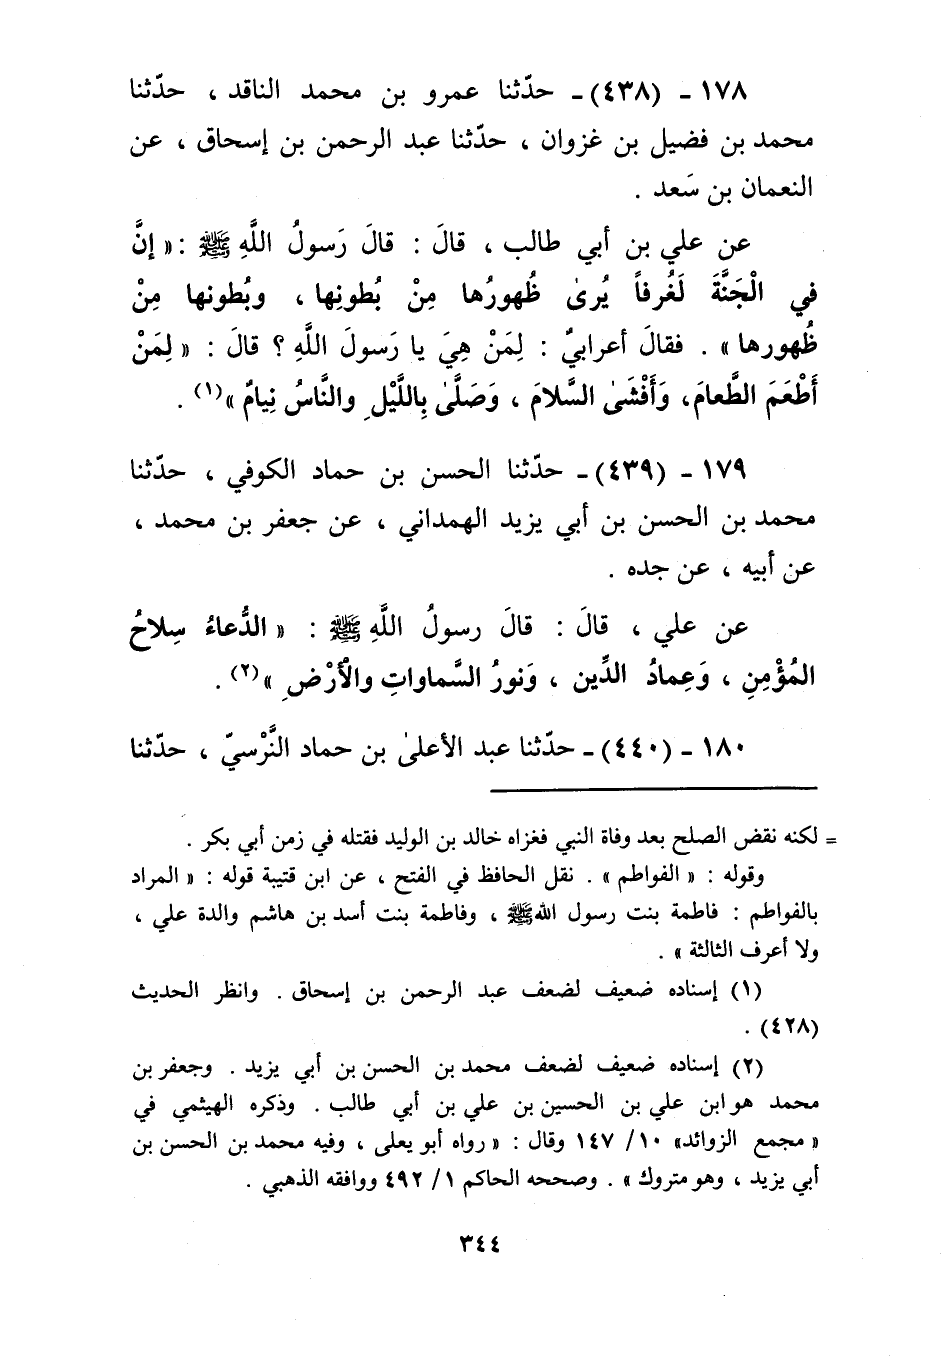 ١٧٨ ـ (٤٣٨) ـ حدّثنا عمرو بن محمد الناقد ، حدّثنا
محمد بن فضيل بن غزوان ، حدّثنا عبد الرحمن بن إسحاق ، عن
النعمان بن سَعد .
عن علي بن أبي طالب ، قالَ : قالَ رَسولُ اللَّهِ ﷺ : « إنَّ
في الْجَنَّةَ لَغُرفاً يُرىٰ ظُهورُها مِنْ بُطونِها ، وبُطونها مِنْ
ظُهورها » . فقالَ أعرابيٌ : لِمَنْ هِيَ يا رَسولَ اللَّهِ ؟ قالَ : « لِمَنْ
أَطْعَمَ الطَّعامَ، وَأَفْشَىٰ السَّلامَ ، وَصَلَّىٰ بِاللَّيْلِ والنَّاسُ نِيامٌ »(١) .
١٧٩ ـ (٤٣٩) ـ حدّثنا الحسن بن حماد الكوفي ، حدّثنا
محمد بن الحسن بن أبي يزيد الهمداني ، عن جعفر بن محمد ،
عن أبيه ، عن جده .
عن علي ، قالَ : قالَ رسولُ اللَّهِ ﷺ : « الدُّعاءُ سِلاحُ
المُؤْمِنِ ، وَعِمادُ الدِّين ، وَنورُ السَّماواتِ والأَرْضِ »(٢) .
١٨٠ ـ (٤٤٠) ـ حدّثنا عبد الأعلىٰ بن حماد النَّرْسيّ ، حدّثنا
= لكنه نقض الصلح بعد وفاة النبي فغزاه خالد بن الوليد فقتله في زمن أبي بكر .
وقوله : « الفواطم » . نقل الحافظ في الفتح ، عن ابن قتيبة قوله : « المراد
بالفواطم : فاطمة بنت رسول الله ﷺ ، وفاطمة بنت أسد بن هاشم والدة علي ،
ولا أعرف الثالثة » .
(١) إسناده ضعيف لضعف عبد الرحمن بن إسحاق . وانظر الحديث
(٤٢٨) .
(٢) إسناده ضعيف لضعف محمد بن الحسن بن أبي يزيد . وجعفر بن
محمد هو ابن علي بن الحسين بن علي بن أبي طالب . وذكره الهيثمي في
« مجمع الزوائد» ١٠/ ١٤٧ وقال : « رواه أبو يعلى ، وفيه محمد بن الحسن بن
أبي يزيد ، وهو متروك » . وصححه الحاكم ١/ ٤٩٢ ووافقه الذهبي .
٣٤٤